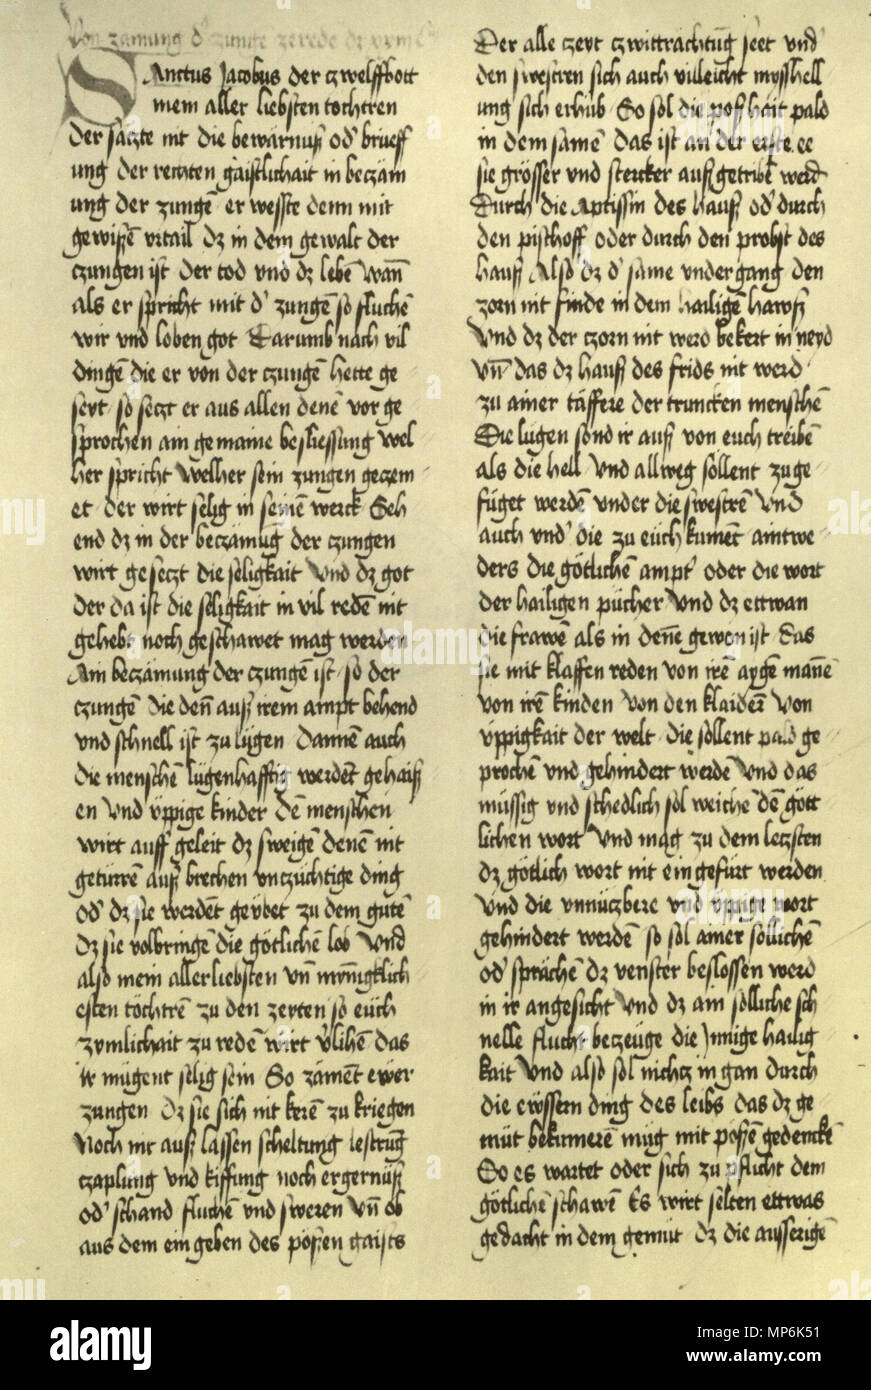 Von zämung d' zunge
SAnctus Jacobus der czwelffbott
mein aller liebsten tochtren
Der saczte nit die bewärnuß od' brueff
ung der rechten gaistlichait in beczäm
ung der zungē er wesste denn mit
gewißē vrtail dz in dem gewalt der
czungen ist der tod vnd dz lebē wan̄
als er spricht mit d' zungē so fluchen
wir vnd loben got Darumb nach vil
dingē die er von der czungē hette ge
seyt so seczt er aus allen denē vor ge
sprochen ain gemaine besliessung wel
her spricht Welher sein zungen geczem
et der wirt selig in seinē werck Seh
end dz in der beczämūg der czungen
wirt geseczt die seligkait Vnd dz got
der da ist die seligkait in vil redē nit
gehebt noch geschawet mag werden
Ain beczämung der czungē ist so der
czungē die den̄ auß irem ampt behend
vnd schnell ist zu lügen Dannē auch
die menschē lügenhafftig werdēt gehaiß
en Vnd üppige kinder Dē menschen
wirt auff geleit dz sweigē denē nit
getürrē auß brechen vnczüchtige ding
od' dz sie werdēt geybet zu dem gutē
Dz sie volbringē die götlichen lob Vnd
also mein allerliebsten vn̄ mynigklich
esten töchtrē zu den zeyten so euch
zymlichait zu redē wirt v'lihē das
ir mügent selig sein So zämēt ewer
zungen Dz sie sich nit kerē zu kriegen
Noch nit auß lassen scheltung lestrūg
czaplung vnd kiffung noch ergernüß
od' schand fluchē vnd sweren Vn̄ ob
aus dem eingeben des pösen gaists
Der alle czeyt czwittrachtūg seet vnd
den swestren sich auch villeicht mysshell
ung sich erhüb So sol die poßhait pald
in dem samē Das ist an der erste ee
sie grösser vnd stercker auß getribē werd
Durch die Aptissin des hauß od' durch
den pischoff oder durch den probst des
hauß Also dz d' same vndergang den
zorn nit finde in dem hailigē hawß
Vnd dz der czorn nit werd bekert in neyd
Vn̄ das dz hauß des frids nit werd
zu ainer täffere der truncken menschē
Die lügen sond ir auß von euch treibē
als die hell Vnd allweg söllent zuge
füget werdē vnder die swestrē Vnd
auch vnd' die zu eüch kumēt aintwe
ders die götlichē ampt oder die wort
der hailigen pücher Vnd dz ettwan
die frawē als in denē gewon ist das
sie mit klaffen reden von irē aygē mannē
von irē kinden von den klaiderē Von
üppigkait der welt die söllent pald ge
prochen vnd gehindert werdē Vnd das
müssig vnd schedlich sol weichē dē gött
lichen wort Vnd mag zu dem letzsten
dz götlich wort nit ein gefürt werden
Vnd die vnnüczbere vnd üppige wort
gehindert werdē so sol ainer söllichen
od' sprächē dz venster beslossen werd
in ir angesicht Vnd dz ain sölliche sch
nelle flucht beczeüge die Innige hailig
kait Vnd also sol nichcz in gan durch
die eüssern ding des leibs das dz ge
müt bekumerē müg mit pösen gedenckē
So es wartet oder sich zu pflicht dem
götlichē schawē Es wirt selten ettwas
gedacht in dem gemüt dz die ausserigē
alamy
Image ID: MP6K51
www.alamy.com